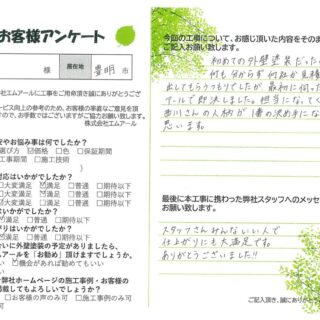 お客様アンケート
様 居住地 豊明 市
社エムアールに工事をご用命頂き誠にありがとうござ
ービス向上の参考のため、お客様の率直なご意見を頂
ますので、お手数ではございますがご協力お願い致します。
株式会社エムアール
安やお悩み事は何でしたか?
選び方 ☑価格 □色 □保証期間
工事期間 □施工技術
対応はいかがでしたか?
大変満足 ☑満足 □普通 □期待以下
はいかがでしたか?
大変満足 □満足 □普通 □期待以下
りはいかがでしたか?
満足 □普通 □期待以下
合いに外壁塗装の予定がありましたら、
ムアールを「お勧め」頂けますでしょうか?
たい ☑機会があれば勧めてもいい
い
弊社ホームページの施工事例・お客様の
掲載してもよろしいでしょうか?
□お客様の声のみ可 □施工事例のみ可
今回の工事について、お感じ頂いた内容をそのま
ご記入お願い致します。
初めての外壁塗装だった
何も分からず何社か見積
出してもらうつもりでしたが最初に伺った
アールで即決しました。担当になってく
西川さんの人柄が1番の決め手にな
思います。
最後に本工事に携わった弊社スタッフへのメッセ
お願い致します。
スタッフさんみんないい人で
仕上がりにも大満足です。
ありがとうございました!!
ご記入頂き、誠にありがとう